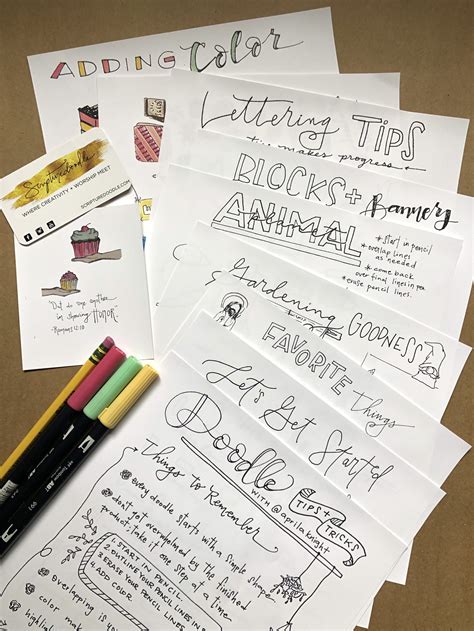 ADDING Color
Lettering TIPS
makes progress
BLOCKS + Banners
ANIMAL
* start in pencil
* overlap lines
as needed
* come back
over final lines in pen
* erase pencil lines.
Scripture Doodle
WHERE CREATIVITY + WORSHIP MEET
SCRIPTUREDOODLE.COM
Out do one another
in showing HONOR
-Romans 12:10
Gardening
GOODNESS
FAVORITE Things
Let's Get Started
Doodle
WITH @aprilaknight
TIPS + TRICKS
Things to Remember
every doodle starts with a simple shape
don't get overwhelmed by the finished
product; take it one step at a time
1. START IN PENCIL
2. OUTLINE YOUR PENCIL LINES IN
3. ERASE YOUR PENCIL LINES
4. ADD COLOR
overlapping
color
highlights